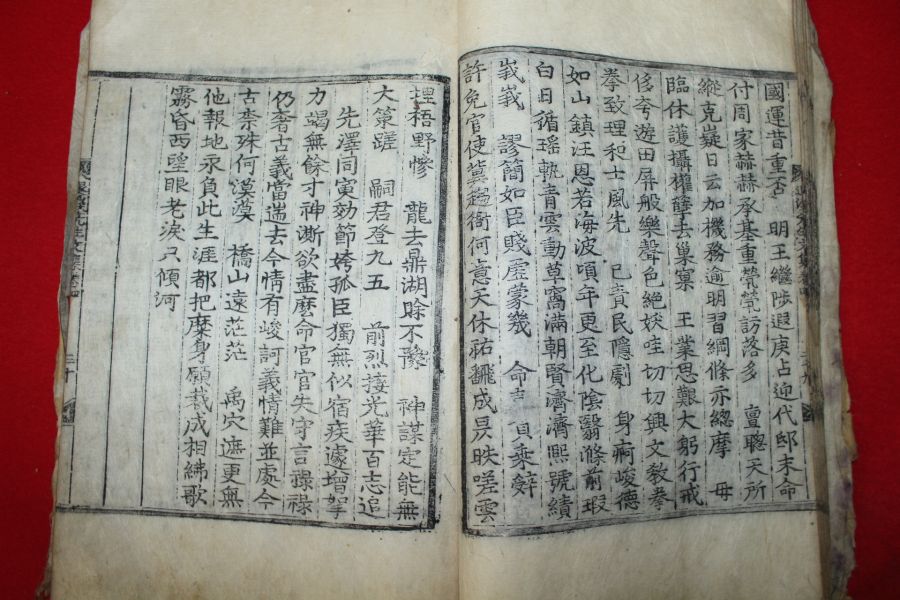 國運昔重否　明王繼陟遐庚占迎代邸末命
付周家赫赫承基重煢煢訪落多　亶聰天所
縱克嶷日云加機務逾明習綱條亦總摩　毋
臨休護攝權孽去巢窠　王業思艱大躬行戒
侈夸遊田屏般樂聲色絶妖哇切切興文教拳
拳致理和士風先　己責民隱劇　身痾峻德
如山鎮汪恩若海波頃年更至化陰翳滌前瑕
白日循瑤軌青雲動草窩滿朝賢濟濟熙號績
峩峩　謬簡如臣賤屢蒙幾　命　頁乘辭
許免官使冀趨衙何意天休祐飜成昃昳嗟雲
埋梧野慘　龍去鼎湖賒不豫　神謀定能無
大策蹉　嗣君登九五　前烈接光華百志追
先澤同寅効節姱孤臣獨無似宿疾遽增
力竭無餘才神澌欲盡麽命官官失守言祿祿
仍奢古義當遄去今情有峻訶義情難並處今
古柰殊何漠漠　橋山遠茫茫　禹穴遮更無
他報地永負此生涯都把糜身願裁成相紼歌
霧昏西望眼老淚只傾河
先生文集卷四
二十